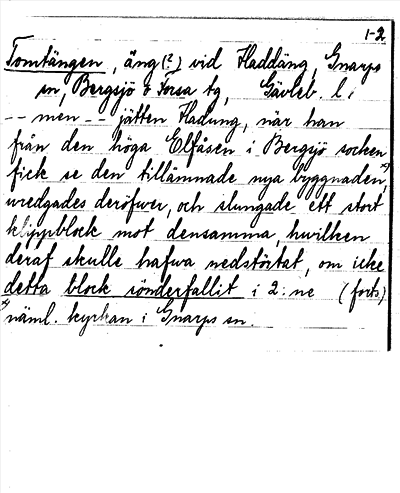 1-2
Tomtängen, äng(?) vid Haddäng, Gnarps
sn, Bergsjö o Forsa tg, Gävleb. l.:
-- men -- jätten Hadung, när han
från den höga Elfåsen i Bergsjö socken
fick se den tillämnade nya byggnaden,x)
wredgades deröfwer, och slungade ett stort
klippblock mot densamma, hwilken
deraf skulle hafwa nedstörtat, om icke
detta block sönderfallit i 2:ne (forts)
x) näml. kyrkan i Gnarps sn.